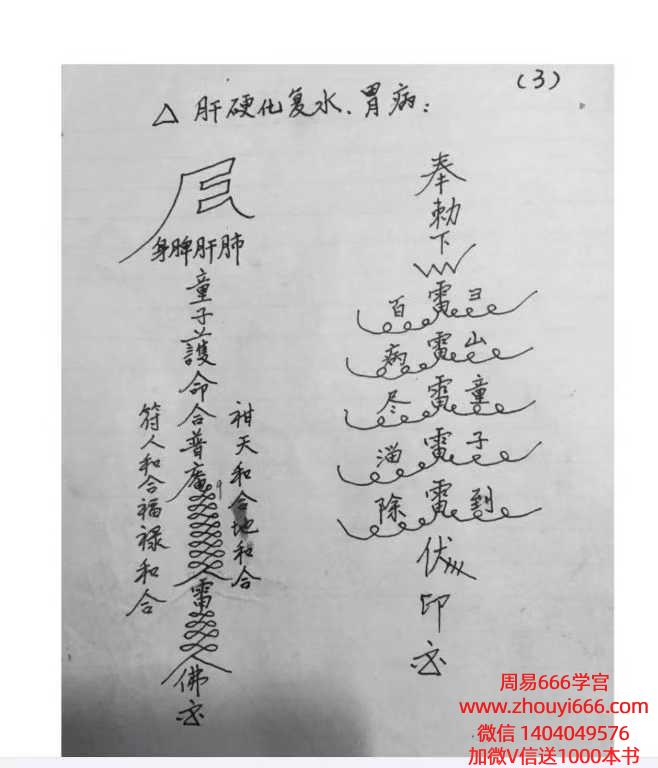 (3)
△ 肝硬化复水、胃病:
身脾肝肺
童子護命合普庵
雷
佛
符人和合福禄和合
神天和合地和合
奉勅下
百雷彐
病雷山
尽雷童
消雷子
除雷到
伏
印
周易666学宫
www.zhouyi666.com
微信 1404049576
加微V信送1000本书